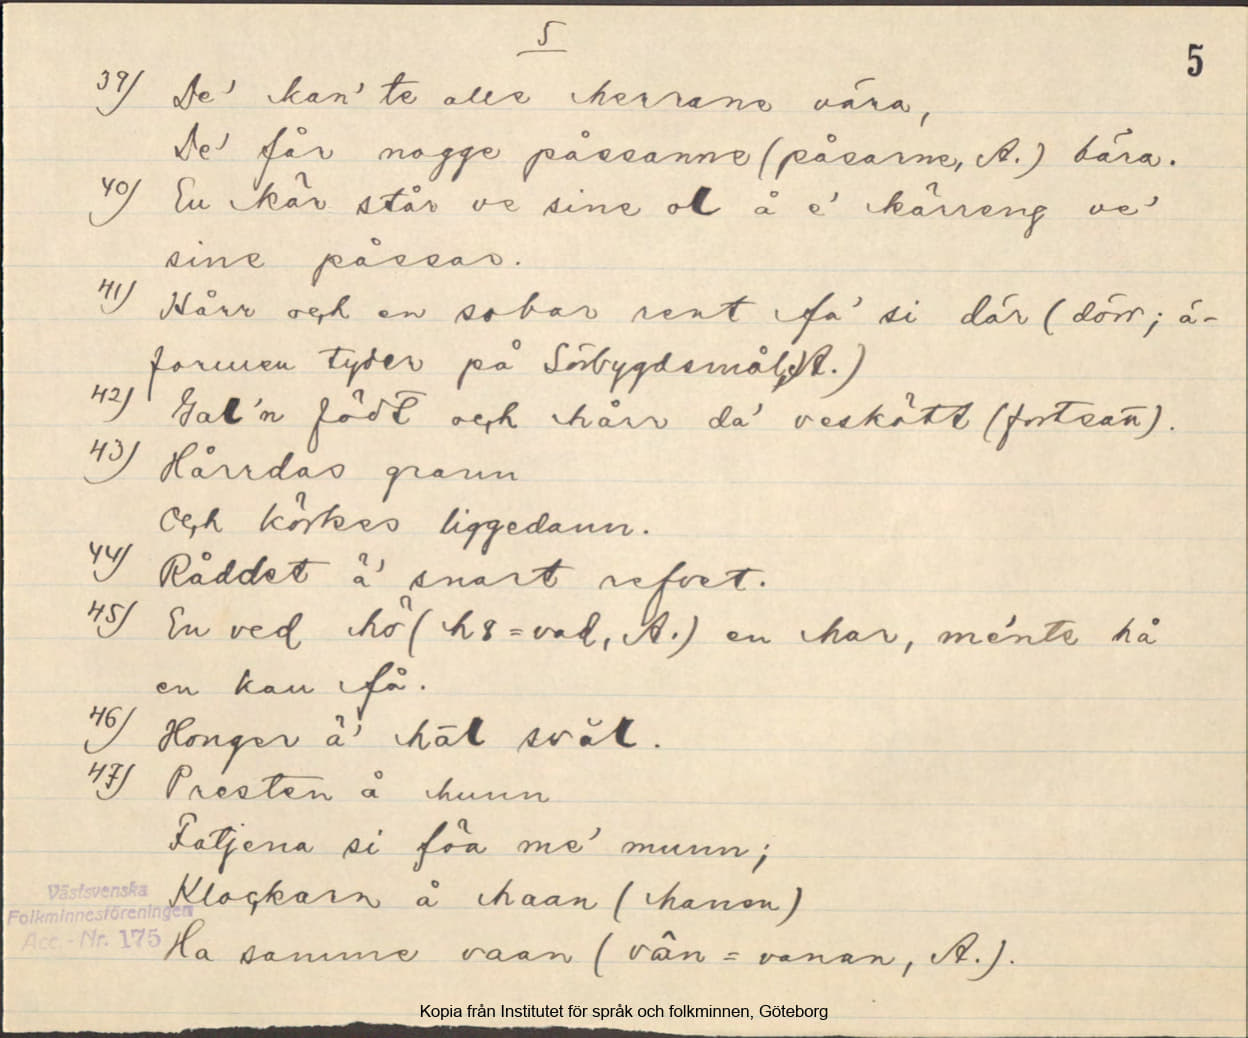 5
5
39) De' kan'te alle herrane vára,
De' får nogge påssanne (påsarne, A.) bára.
40) En kär står ve sine ol å e' kärreng ve'
sine påssar.
41) Hårr och en sobar rent få' si där (dörr; á-
formen tyder på Sörbygdsmål, A.)
42) Gal'n födt och hårr da' veskött (fortsatt).
43) Hårrdas grann
Och körkes liggedann.
44) Råddet ä' snart refvet.
45) En ved hö (h8 = vad, A.) en har, ménte hå
en kan få.
46) Honger ä' häl svål.
47) Presten å hunn
Fatjena si föa me' munn;
Klockarn å haan (hanen)
Ha samme vaan (vân = vanan, A.).
Västsvenska
Folkminnesföreningen
Acc.-Nr. 175
Kopia från Institutet för språk och folkminnen, Göteborg